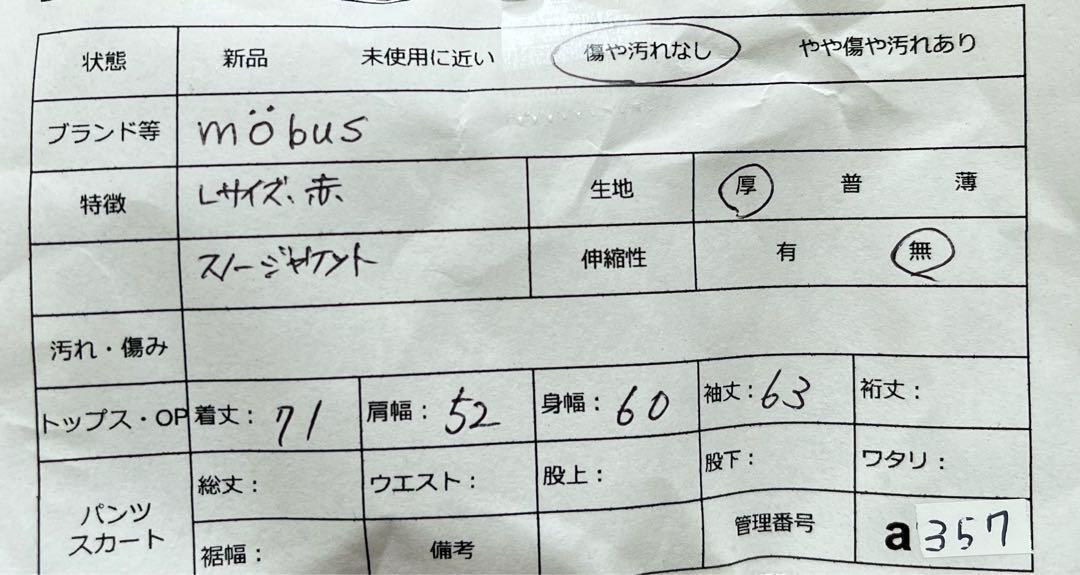 状態 新品 未使用に近い 傷や汚れなし やや傷や汚れあり
ブランド等 möbus
特徴 Lサイズ、赤、 生地 厚 普 薄
スノージャケット 伸縮性 有 無
汚れ・傷み
トップス・OP 着丈：71 肩幅：52 身幅：60 袖丈：63 裄丈：
パンツ スカート 総丈： ウエスト： 股上： 股下： ワタリ：
裾幅： 備考 管理番号 a357